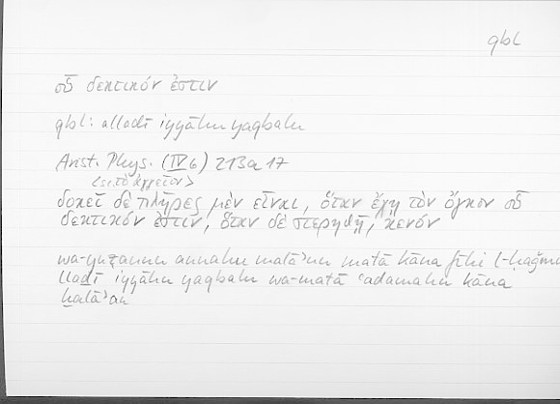 qbl
οὗ δεκτικόν ἐστιν
qbl: allaḏī iyyāhu yaqbalu
Arist. Phys. (IV 6) 213a 17
<sc. τὸ ἀγγεῖον>
δοκεῖ δὲ πλῆρες μὲν εἶναι, ὅταν ἔχῃ τὸν ὄγκον οὗ
δεκτικόν ἐστιν, ὅταν δὲ στερηθῇ, κενόν
wa-yuẓannu annahu malāʾun matā kāna fīhi l-ḥaǧmu
llaḏī iyyāhu yaqbalu wa-matā ʿadamahu kāna
ḫalāʾan